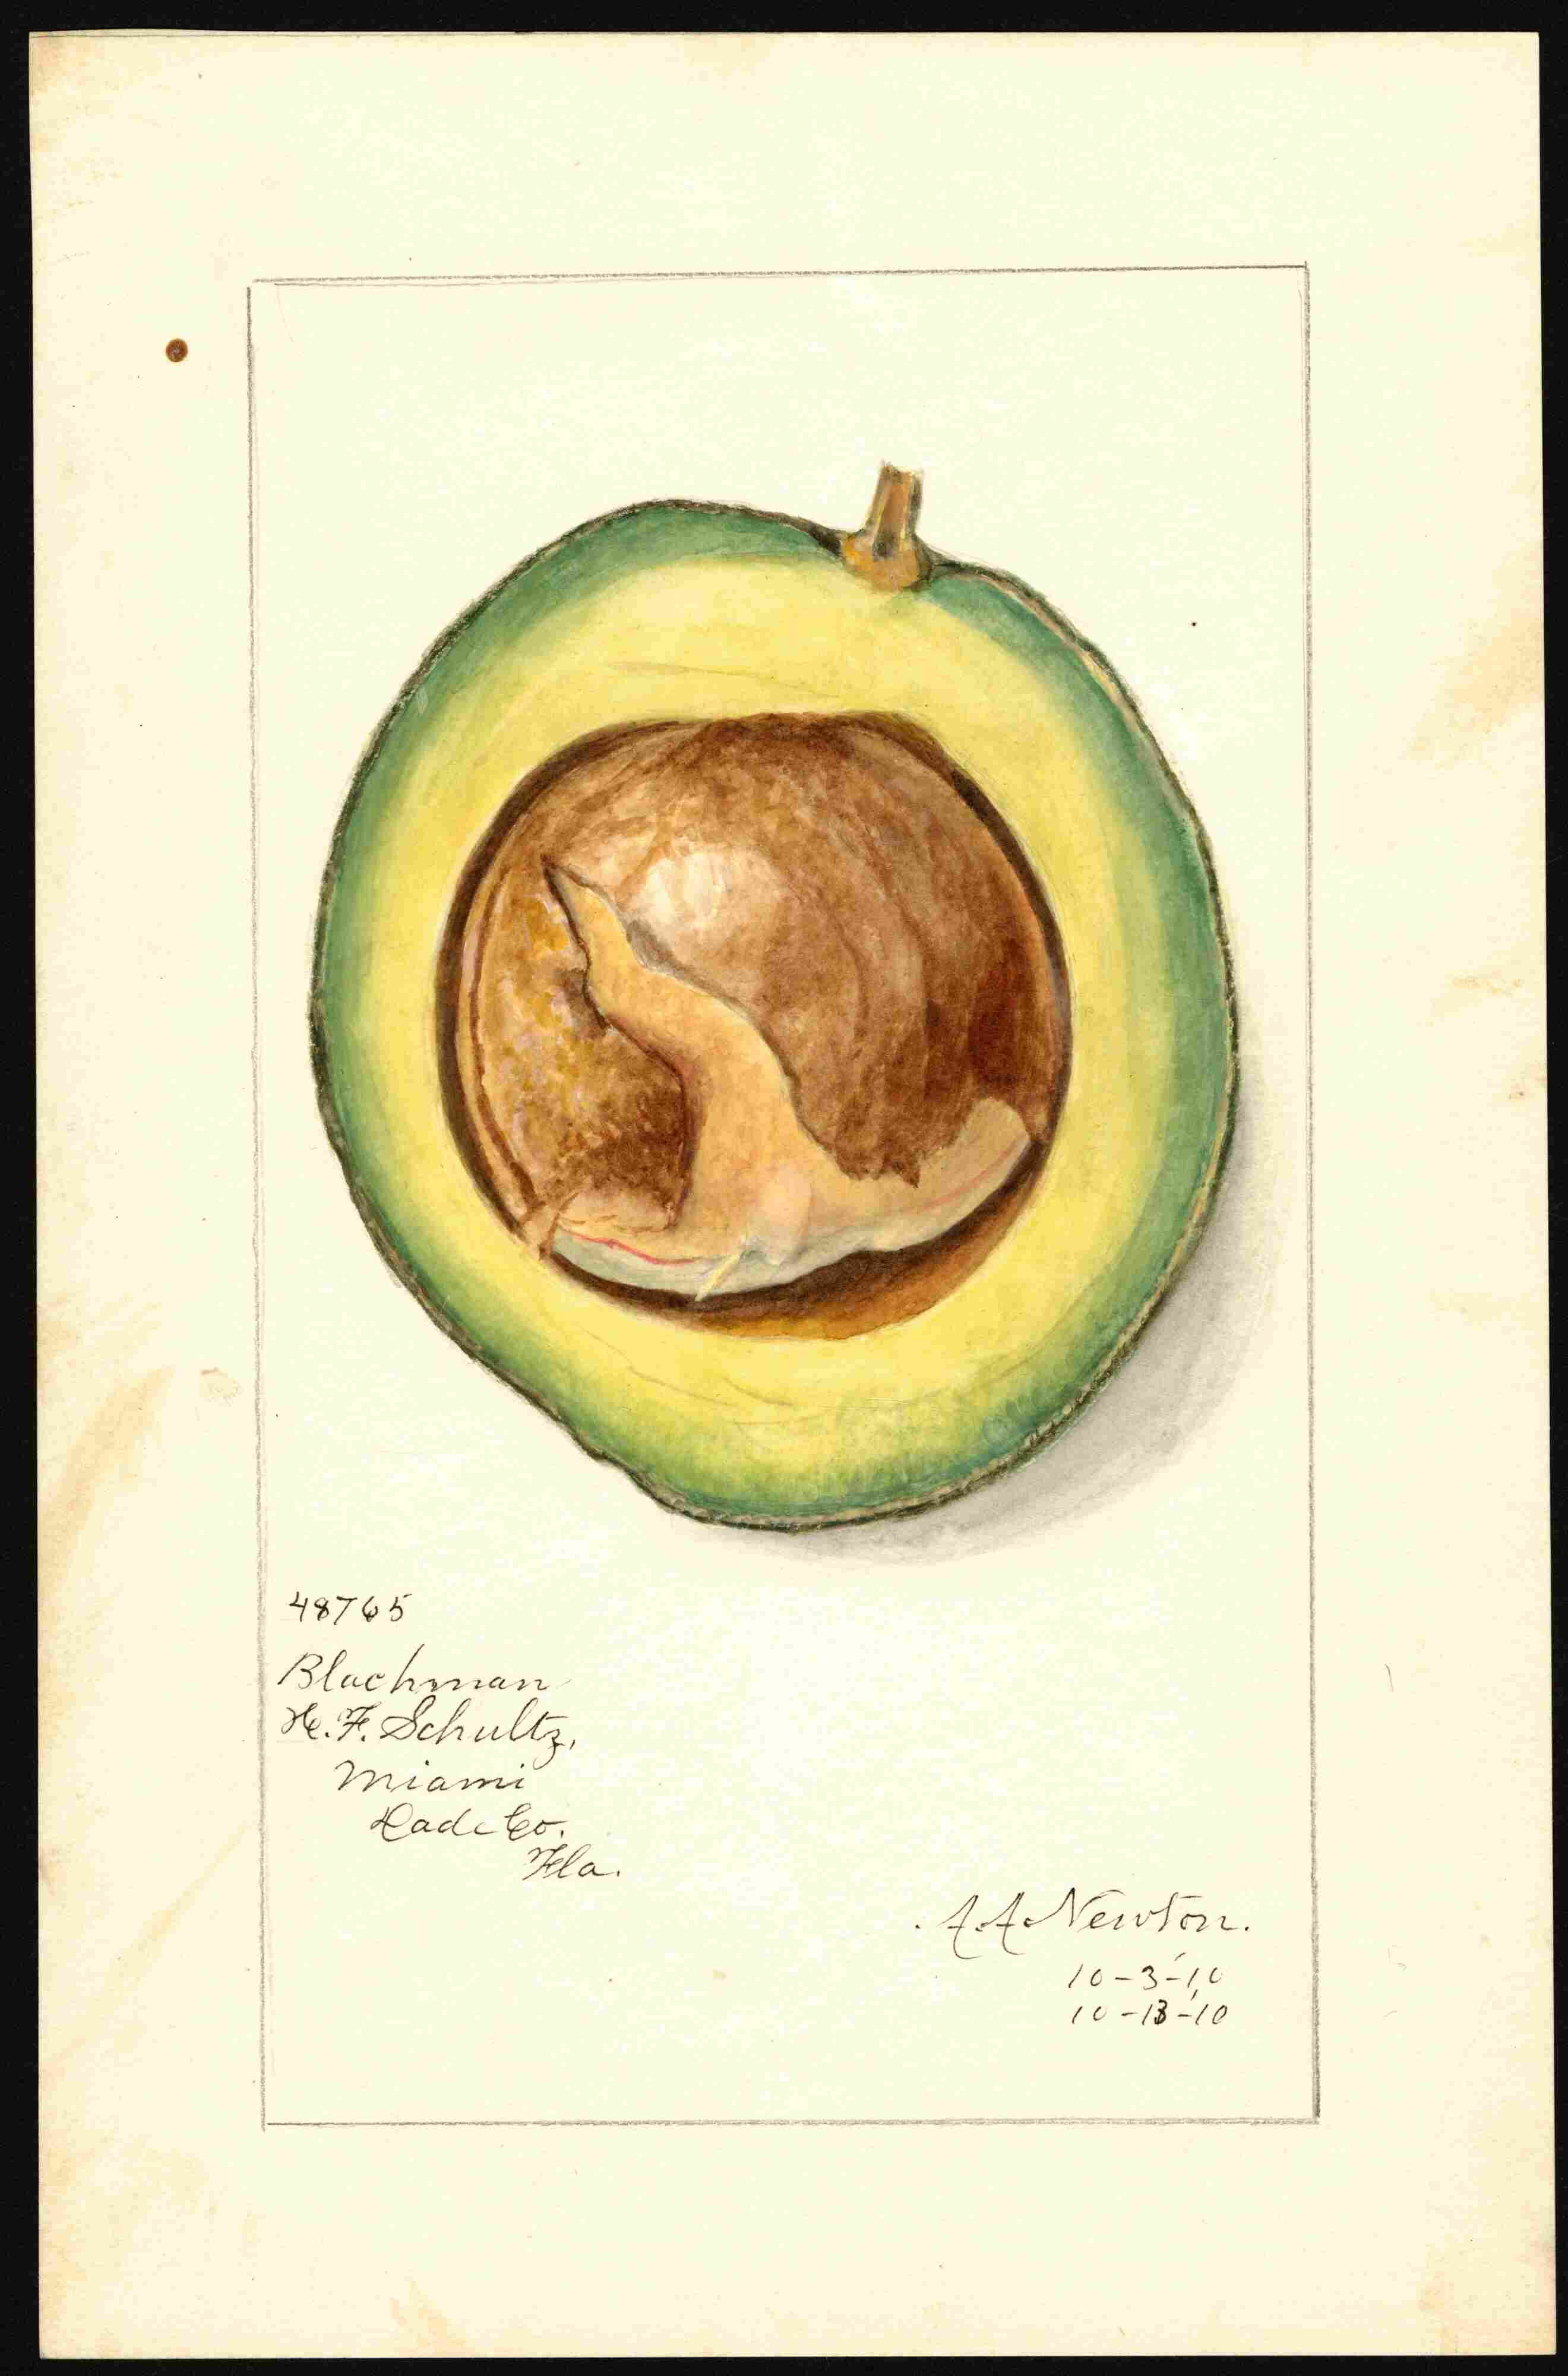 48765
Blackman
H. F. Schultz,
Miami
Dade Co.
Fla.
A. A. Newton.
10-3-'10
10-13-'10